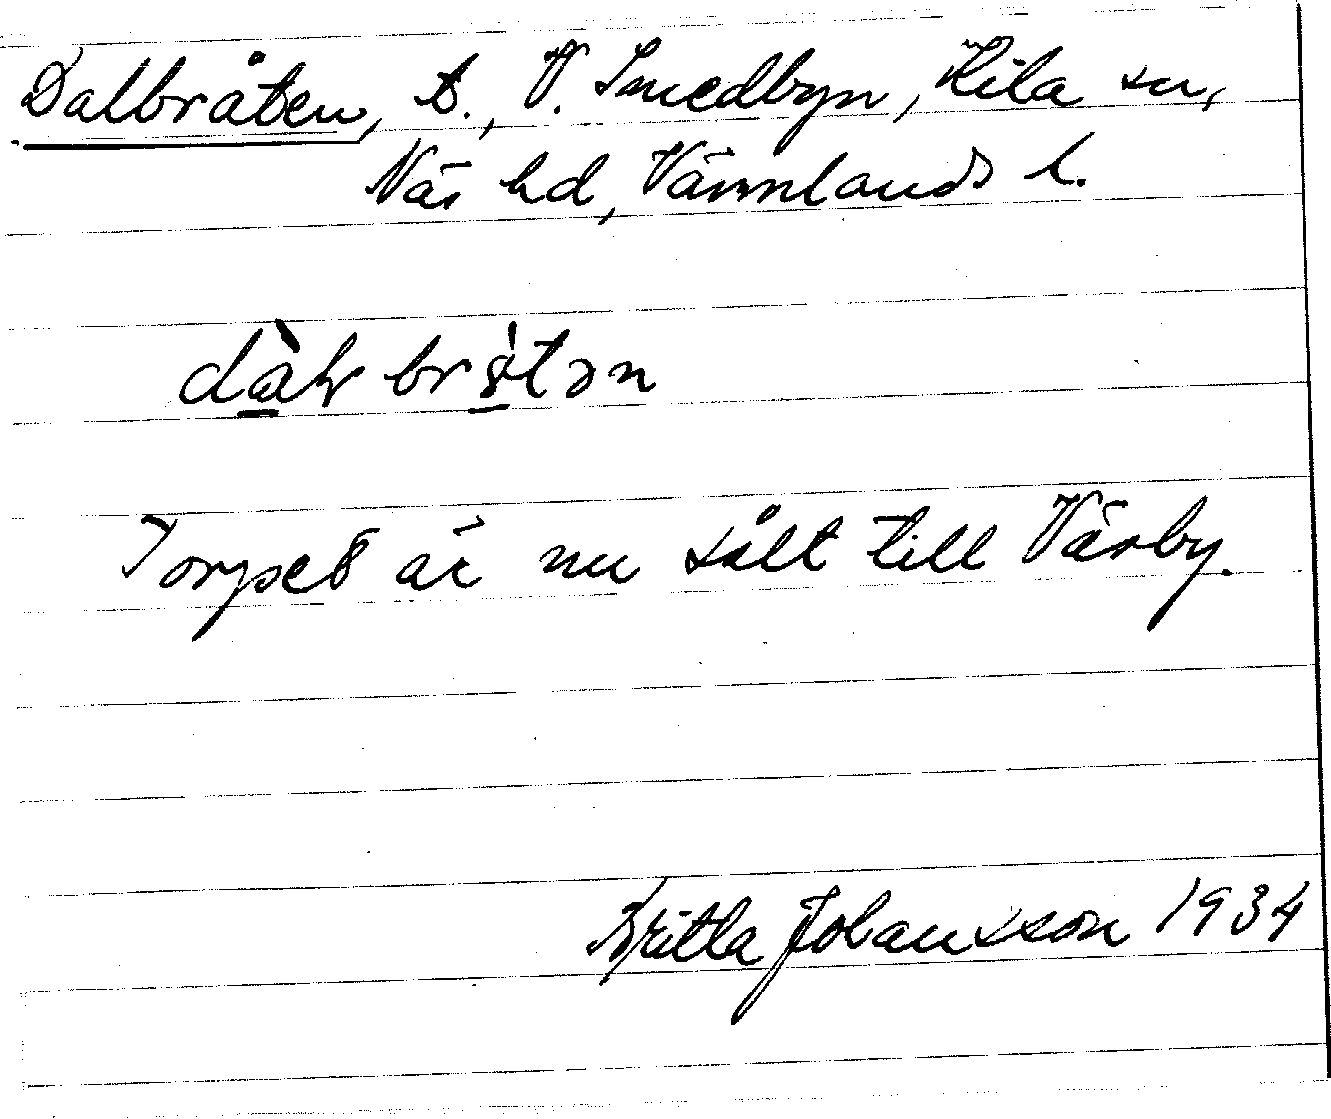 Dalbråten, t., V. Smedbyn, Kila sn,
Näs hd, Värmlands l.
Torpet är nu sålt till Värby.
Britta Johansson 1934